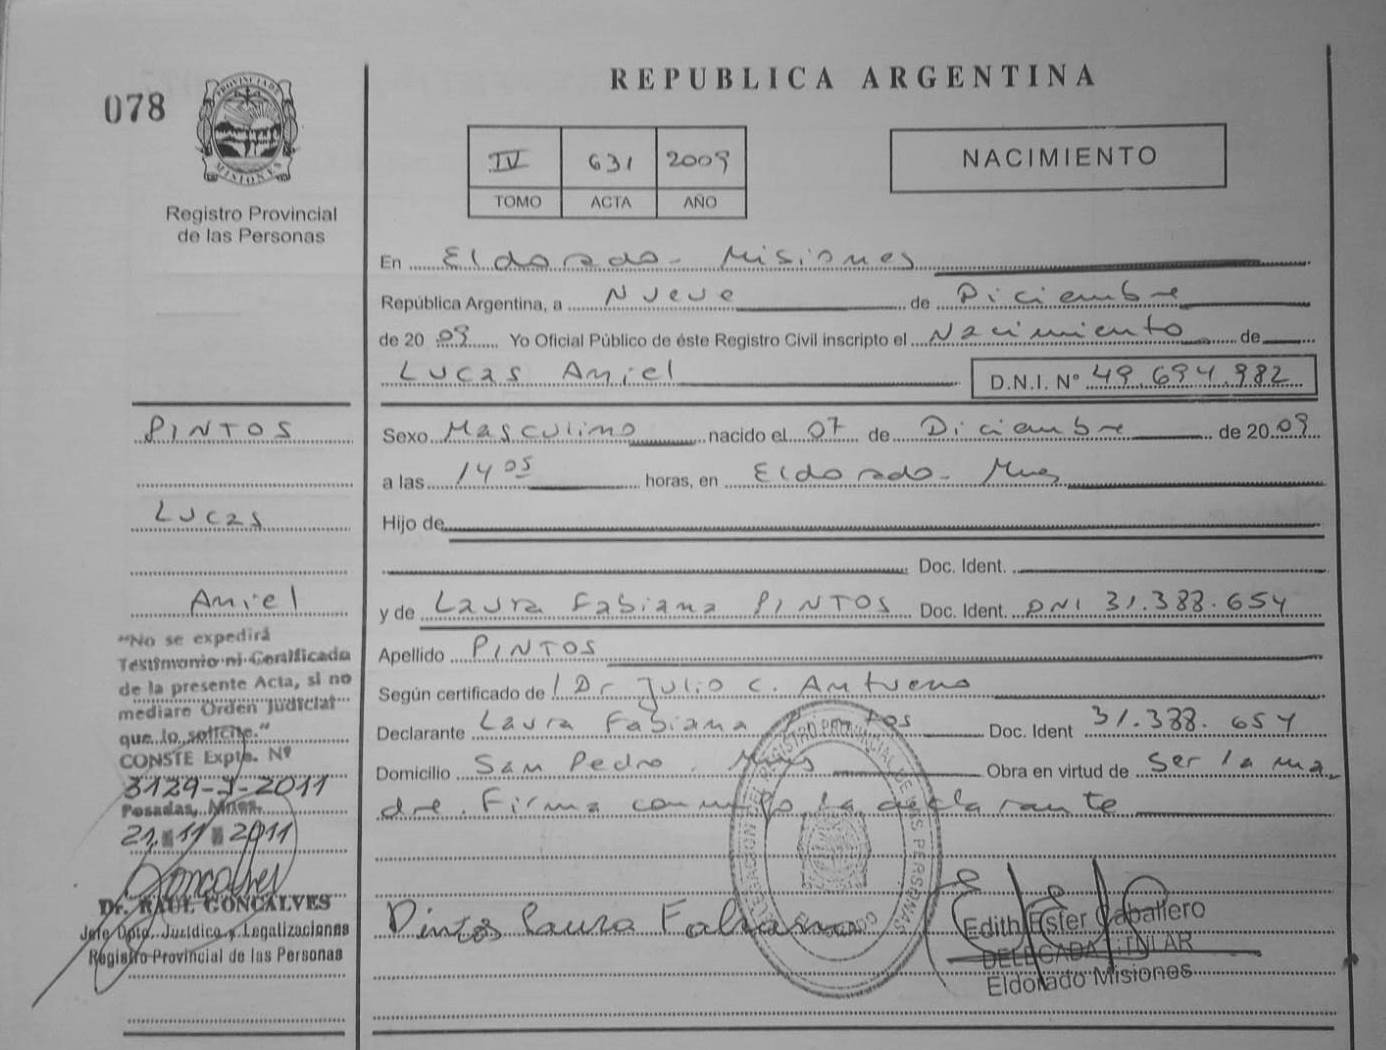 078
PROVINCIA DE
MISIONES
Registro Provincial
de las Personas
REPUBLICA ARGENTINA
IV 631 2009
TOMO ACTA AÑO
NACIMIENTO
En Eldorado - Misiones
República Argentina, a Nueve de Diciembre
de 2009 Yo Oficial Público de éste Registro Civil inscripto el Nacimiento de
Lucas Amiel D.N.I. Nº 49.694.982
Sexo Masculino nacido el 07 de Diciembre de 2009
a las 14 05 horas, en Eldorado - Mnes
Hijo de
Doc. Ident.
y de Laura Fabiana PINTOS Doc. Ident. DNI 31.388.654
Apellido PINTOS
Según certificado de Dr Julio C.
Declarante Laura Fabiana Pintos Doc. Ident 31.388.654
Domicilio San Pedro. Mnes Obra en virtud de Ser la ma
dre. Firma conmigo la declarante
Pintos Laura Fabiana
Edith Ester Caballero
DELEGADA TITULAR
Eldorado Misiones
PINTOS
Lucas
Amiel
"No se expedirá
Testimonio ni Certificado
de la presente Acta, si no
mediare Orden Judicial
que lo solicite."
CONSTE Expte. Nº
3129-J-2011
Posadas, Mnes.
21 11 2011
Goncalves
Dr. RAUL GONCALVES
Jefe Dpto. Jurídico y Legalizaciones
Registro Provincial de las Personas